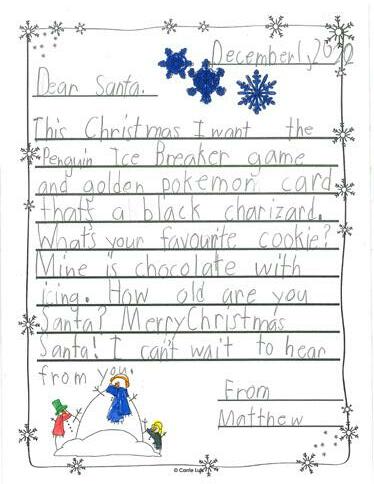 December 1, 20
Dear Santa.
This Christmas I want the
Penguin Ice Breaker game
and golden pokemon card
that's a black charizard.
What's your favourite cookie?
Mine is chocolate with
icing. How old are you
Santa? Merry Christmas
Santa! I can't wait to hear
from you.
From
Matthew